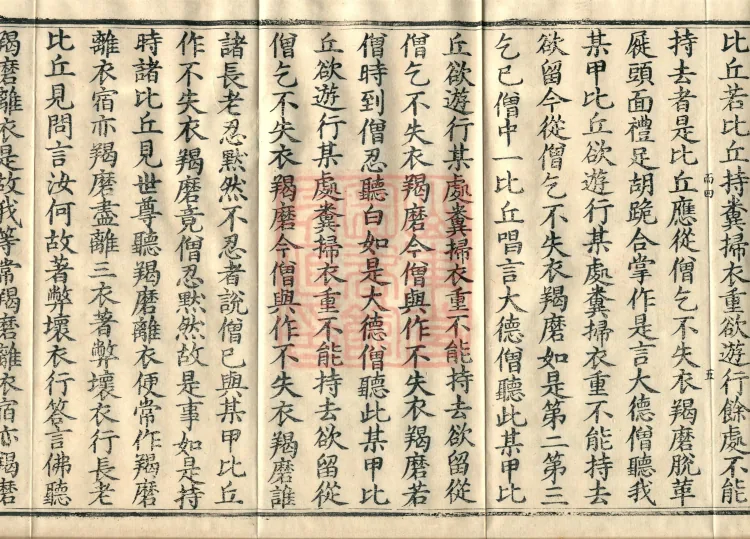 比丘若比丘持糞掃衣重欲遊行餘處不能
持去者是比丘應從僧乞不失衣羯磨脫革
屣頭面禮足胡跪合掌作是言大德僧聽我
某甲比丘欲遊行某處糞掃衣重不能持去
欲留今從僧乞不失衣羯磨如是第二第三
乞已僧中一比丘唱言大德僧聽此某甲比
丘欲遊行某處糞掃衣重不能持去欲留從
僧乞不失衣羯磨今僧與作不失衣羯磨若
僧時到僧忍聽白如是大德僧聽此某甲比
丘欲遊行某處糞掃衣重不能持去欲留從
僧乞不失衣羯磨今僧與作不失衣羯磨誰
諸長老忍黙然不忍者說僧已與某甲比丘
作不失衣羯磨竟僧忍黙然故是事如是持
時諸比丘見世尊聽羯磨離衣便常作羯磨
離衣宿亦羯磨盡離三衣著弊壞衣行長老
比丘見問言汝何故著弊壞衣行答言佛聽
羯磨離衣是故我等常羯磨離衣宿亦羯磨